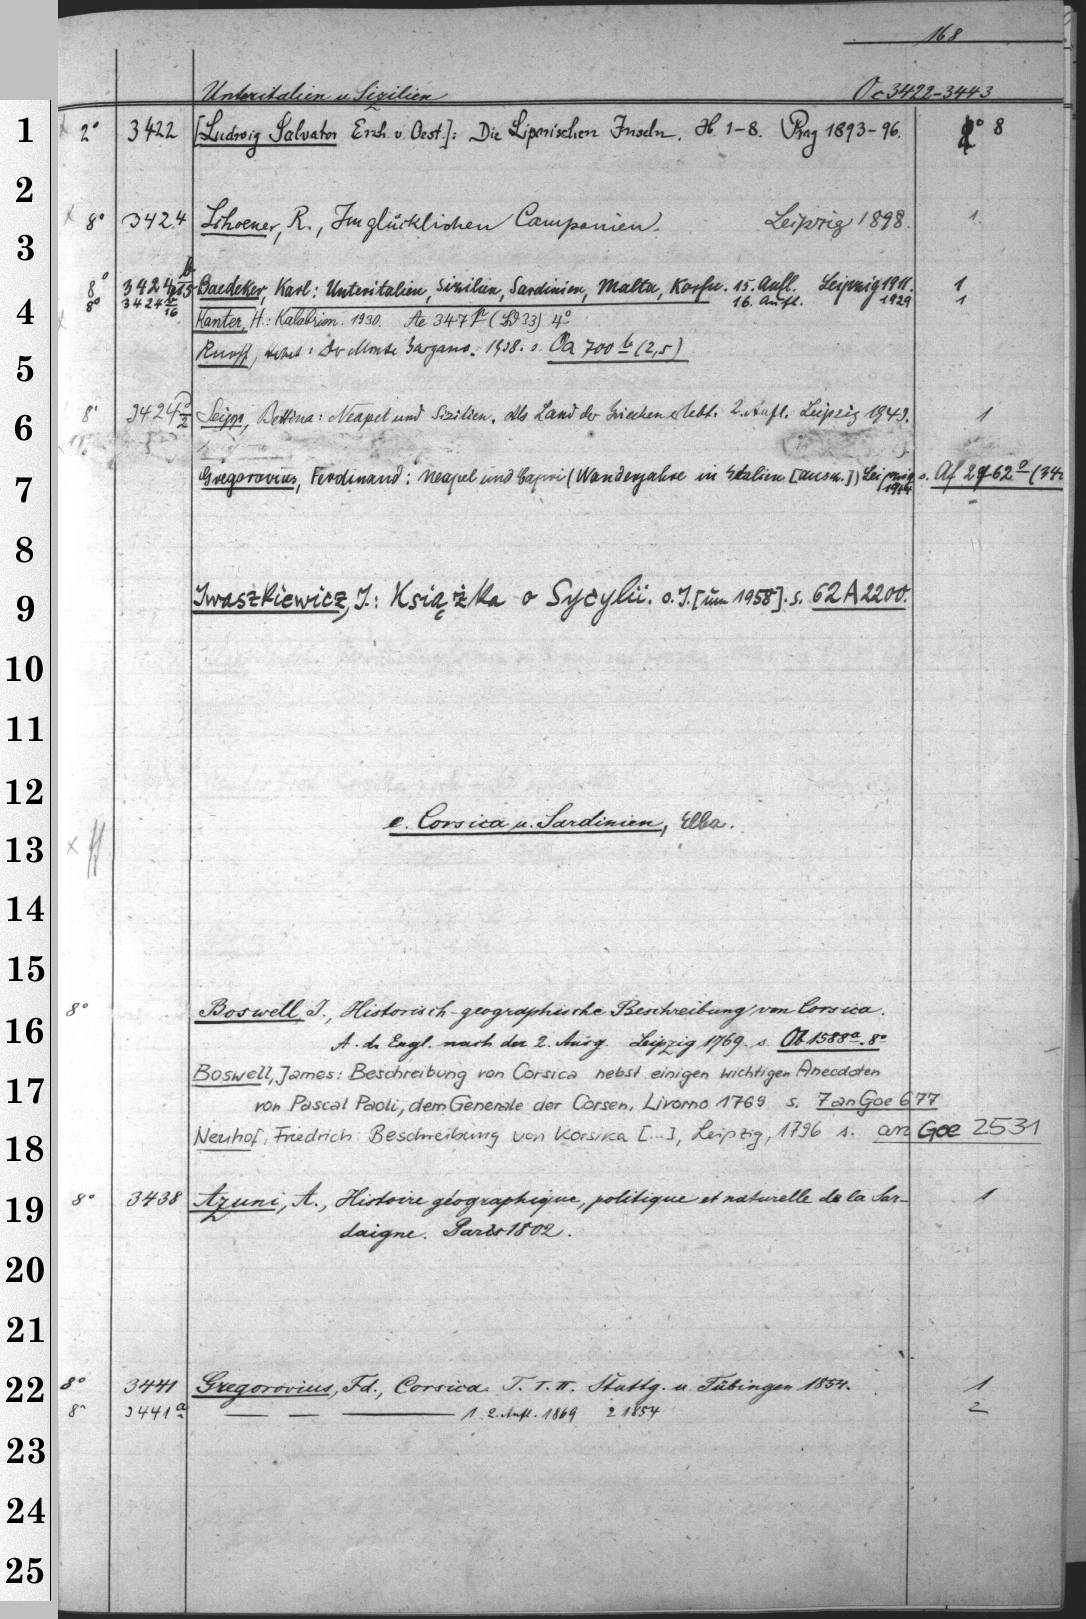 168
Unteritalien u. Sizilien Oc 3422-3443
1 2° 3422 [Ludwig Salvator Erzh. v. Oest.]: Die Liparischen Inseln. H. 1-8. Prag 1893-96. 2° 8
2
8° 3424 Schoener, R., Im glücklichen Campanien. Leipzig 1898. 1
3
8° 3424 b 15 Baedeker, Karl: Unteritalien, Sizilien, Sardinien, Malta, Korfu. 15. Aufl. Leipzig 1911. 1
8° 3424 16 16. Aufl. 1929 1
4 Kanter, H.: Kalabrien. 1930. Ae 347 (L° 33) 4°
5 Monte Gargano. 1938. s. Oa 700 b (2,5)
6 8° 3424 2 Seipp, Bettina: Neapel und Sizilien. Als Land der Griechen erlebt. 2. Aufl. Leipzig 1943. 1
7 Gregorovius, Ferdinand: Neapel und Capri (Wanderjahre in Italien [Ausw.]) Leipzig 1944 s. Af 2962 a (34
8
9 Iwaszkiewicz, J.: Książka o Sycylii. o. J. [um 1958]. s. 62 A 2200.
10
11
12
e. Corsica u. Sardinien, Elba.
13
14
15
8° Boswell, J., Historisch-geographische Beschreibung von Corsica.
16 A. d. Engl. nach der 2. Ausg. Leipzig 1769. s. Ob 1588a. 8°
Boswell, James: Beschreibung von Corsica nebst einigen wichtigen Anecdoten
17 von Pascal Paoli, dem Generale der Corsen. Livorno 1769 s. 7 an Goe 677
18 Neuhof, Friedrich: Beschreibung von Korsika [...], Leipzig, 1796 s. an Goe 2531
19 8° 3438 Azuni, A., Histoire géographique, politique et naturelle de la Sar- 1
daigne. Paris 1802.
20
21
22 8° 3441 Gregorovius, Fd., Corsica. T. I. II. Stuttg. u. Tübingen 1854. 1
8° 3441 a — — — 1 2. Aufl. 1869 2 1854 2
23
24
25